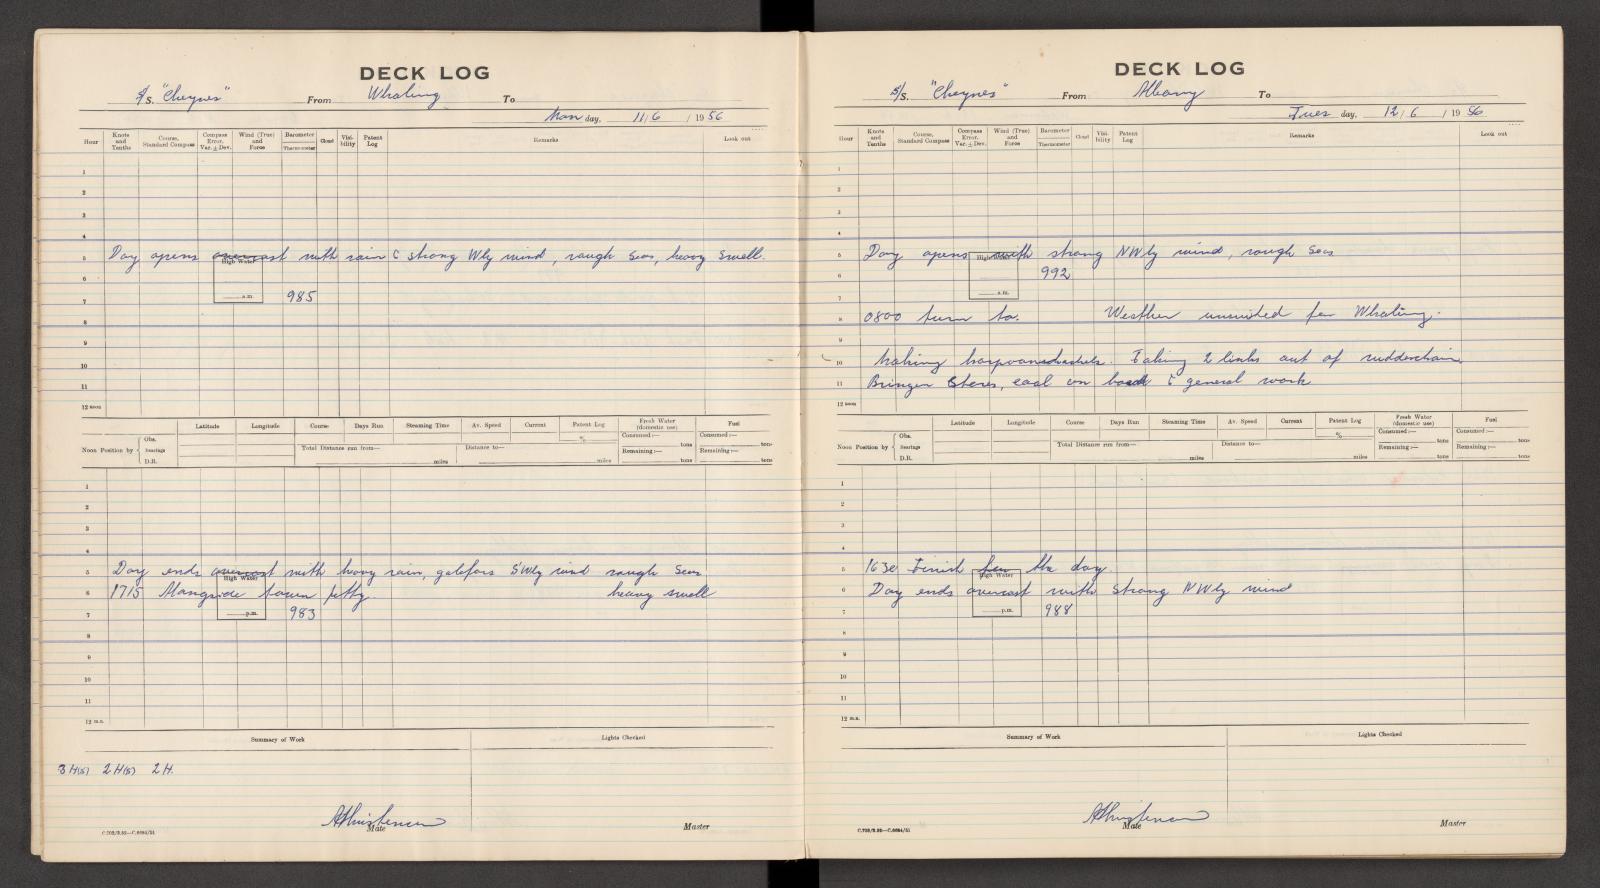 DECK LOG
S/S. "Cheynes" From Whaling To
Mon day, 11/6 / 19 56
Hour Knots and Tenths Course, Standard Compass Compass Error. Var. ± Dev. Wind (True) and Force Barometer Thermometer Cloud Visibility Patent Log Remarks Look out
1
2
3
4
5 Day opens overcast with rain & strong Wly wind, rough seas, heavy swell.
High Water
6
a.m.
7 985
8
9
10
11
12 noon
Latitude Longitude Course Days Run Steaming Time Av. Speed Current Patent Log % Fresh Water (domestic use) Fuel
Consumed :— tons Consumed :— tons
Noon Position by Obs. Bearings D.R. Total Distance run from— miles Distance to— miles Remaining :— tons Remaining :— tons
1
2
3
4
5 Day ends overcast with heavy rain, galefors S'Wly wind rough seas
High Water
6 1715 Alongside town jetty. heavy swell
p.m.
7 983
8
9
10
11
12 m.n.
Summary of Work Lights Checked
3 H(s) 2 H(s) 2 H.
AChristensen
Mate Master
C.702/2.52—C.6694/51
DECK LOG
S/S. "Cheynes" From Albany To
Tues day, 12 / 6 / 19 56
Hour Knots and Tenths Course, Standard Compass Compass Error. Var. ± Dev. Wind (True) and Force Barometer Thermometer Cloud Visibility Patent Log Remarks Look out
1
2
3
4
5 Day opens with strong NWly wind, rough seas
High Water
6 992
a.m.
7
8 0800 turn to. Weather unsuited for Whaling.
9
10 Making harpoon Taking 2 links out of rudderchain
11 Bringen Stores, coal on board & general work
12 noon
Latitude Longitude Course Days Run Steaming Time Av. Speed Current Patent Log % Fresh Water (domestic use) Fuel
Consumed :— tons Consumed :— tons
Noon Position by Obs. Bearings D.R. Total Distance run from— miles Distance to— miles Remaining :— tons Remaining :— tons
1
2
3
4
5 1630 Finish for the day
High Water
6 Day ends overcast with strong NWly wind
p.m.
7 988
8
9
10
11
12 m.n.
Summary of Work Lights Checked
AChristensen
Mate Master
C.702/2.52—C.6694/51